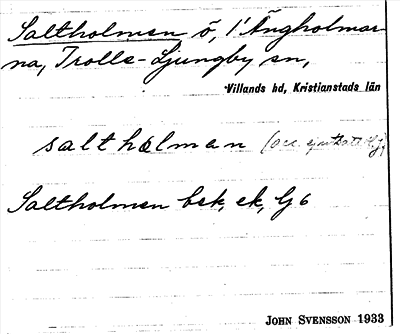 Saltholmen ö, i Ängholmar-
na, Trolle-Ljungby sn,
Villands hd, Kristianstads län
saltholman (acc.
Saltholmen bek, ek, Lj 6
JOHN SVENSSON 1933